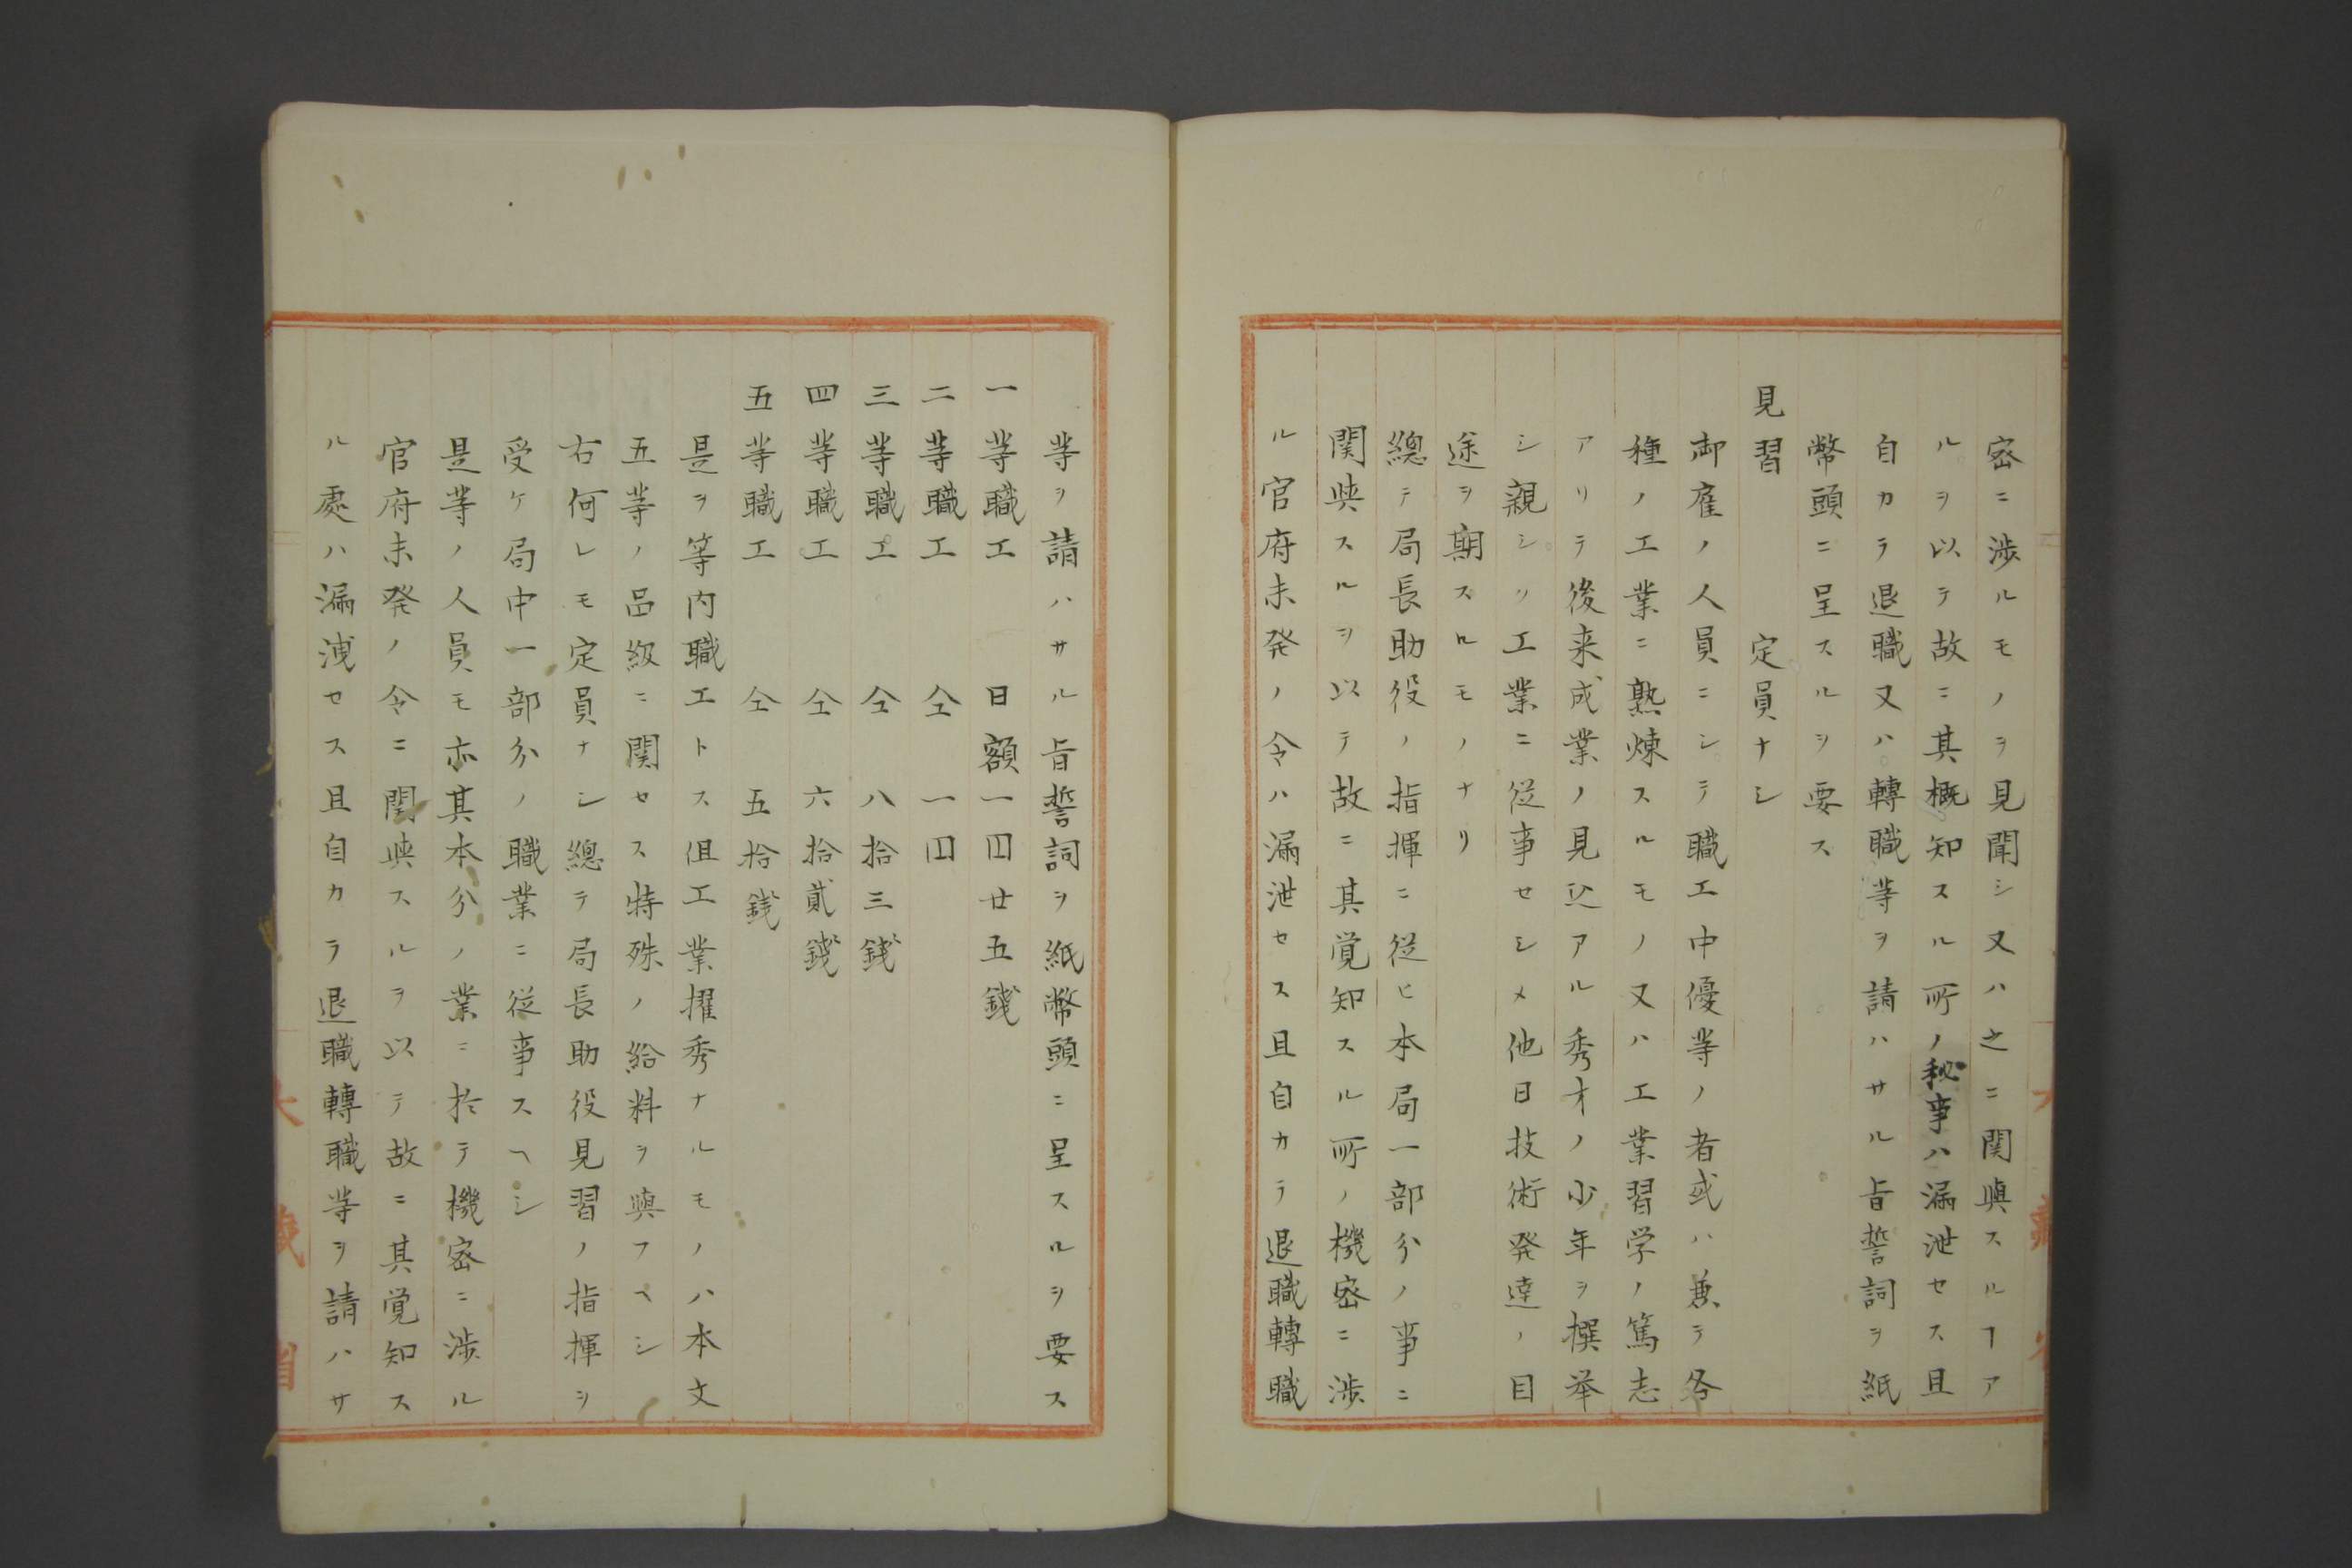 密ニ渉ルモノヲ見聞シ又ハ之ニ関與スルヿア
ルヲ以テ故ニ其概知スル所ノ秘事ハ漏泄セス且
自カラ退職又ハ轉職等ヲ請ハサル旨誓詞ヲ紙
幣頭ニ呈スルヲ要ス
見習　　　定員ナシ
御雇ノ人員ニシテ職工中優等ノ者或ハ兼テ各
種ノ工業ニ熟煉スルモノ又ハ工業習学ノ篤志
アリテ後来成業ノ見込アル秀才ノ少年ヲ撰挙
シ親シク工業ニ従事セシメ他日技術発達ノ目
途ヲ期スルモノナリ
總テ局長助役ノ指揮ニ従ヒ本局一部分ノ事ニ
関與スルヲ以テ故ニ其覚知スル所ノ機密ニ渉
ル官府未発ノ令ハ漏泄セス且自カラ退職轉職
等ヲ請ハサル旨誓詞ヲ紙幣頭ニ呈スルヲ要ス
一等職工　　日額一円廿五錢
二等職工　　仝　一円
三等職工　　仝　八拾三錢
四等職工　　仝　六拾貳錢
五等職工　　仝　五拾錢
是ヲ等内職工トス但工業擢秀ナルモノハ本文
五等ノ品級ニ関セス特殊ノ給料ヲ與フヘシ
右何レモ定員ナシ總テ局長助役見習ノ指揮ヲ
受ケ局中一部分ノ職業ニ従事スヘシ
是等ノ人員モ亦其本分ノ業ニ於テ機密ニ渉ル
官府未発ノ令ニ関與スルヲ以テ故ニ其覚知ス
ル處ハ漏洩セス且自カラ退職轉職等ヲ請ハサ
大蔵省